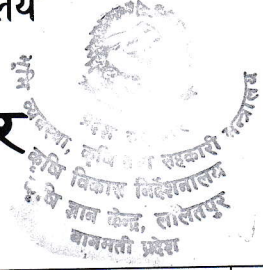 लय
र
भूमि व्यवस्था, कृषि तथा सहकारी मन्त्रालय
कृषि विकास निर्देशनालय
कृषि ज्ञान केन्द्र, ललितपुर
बागमती प्रदेश